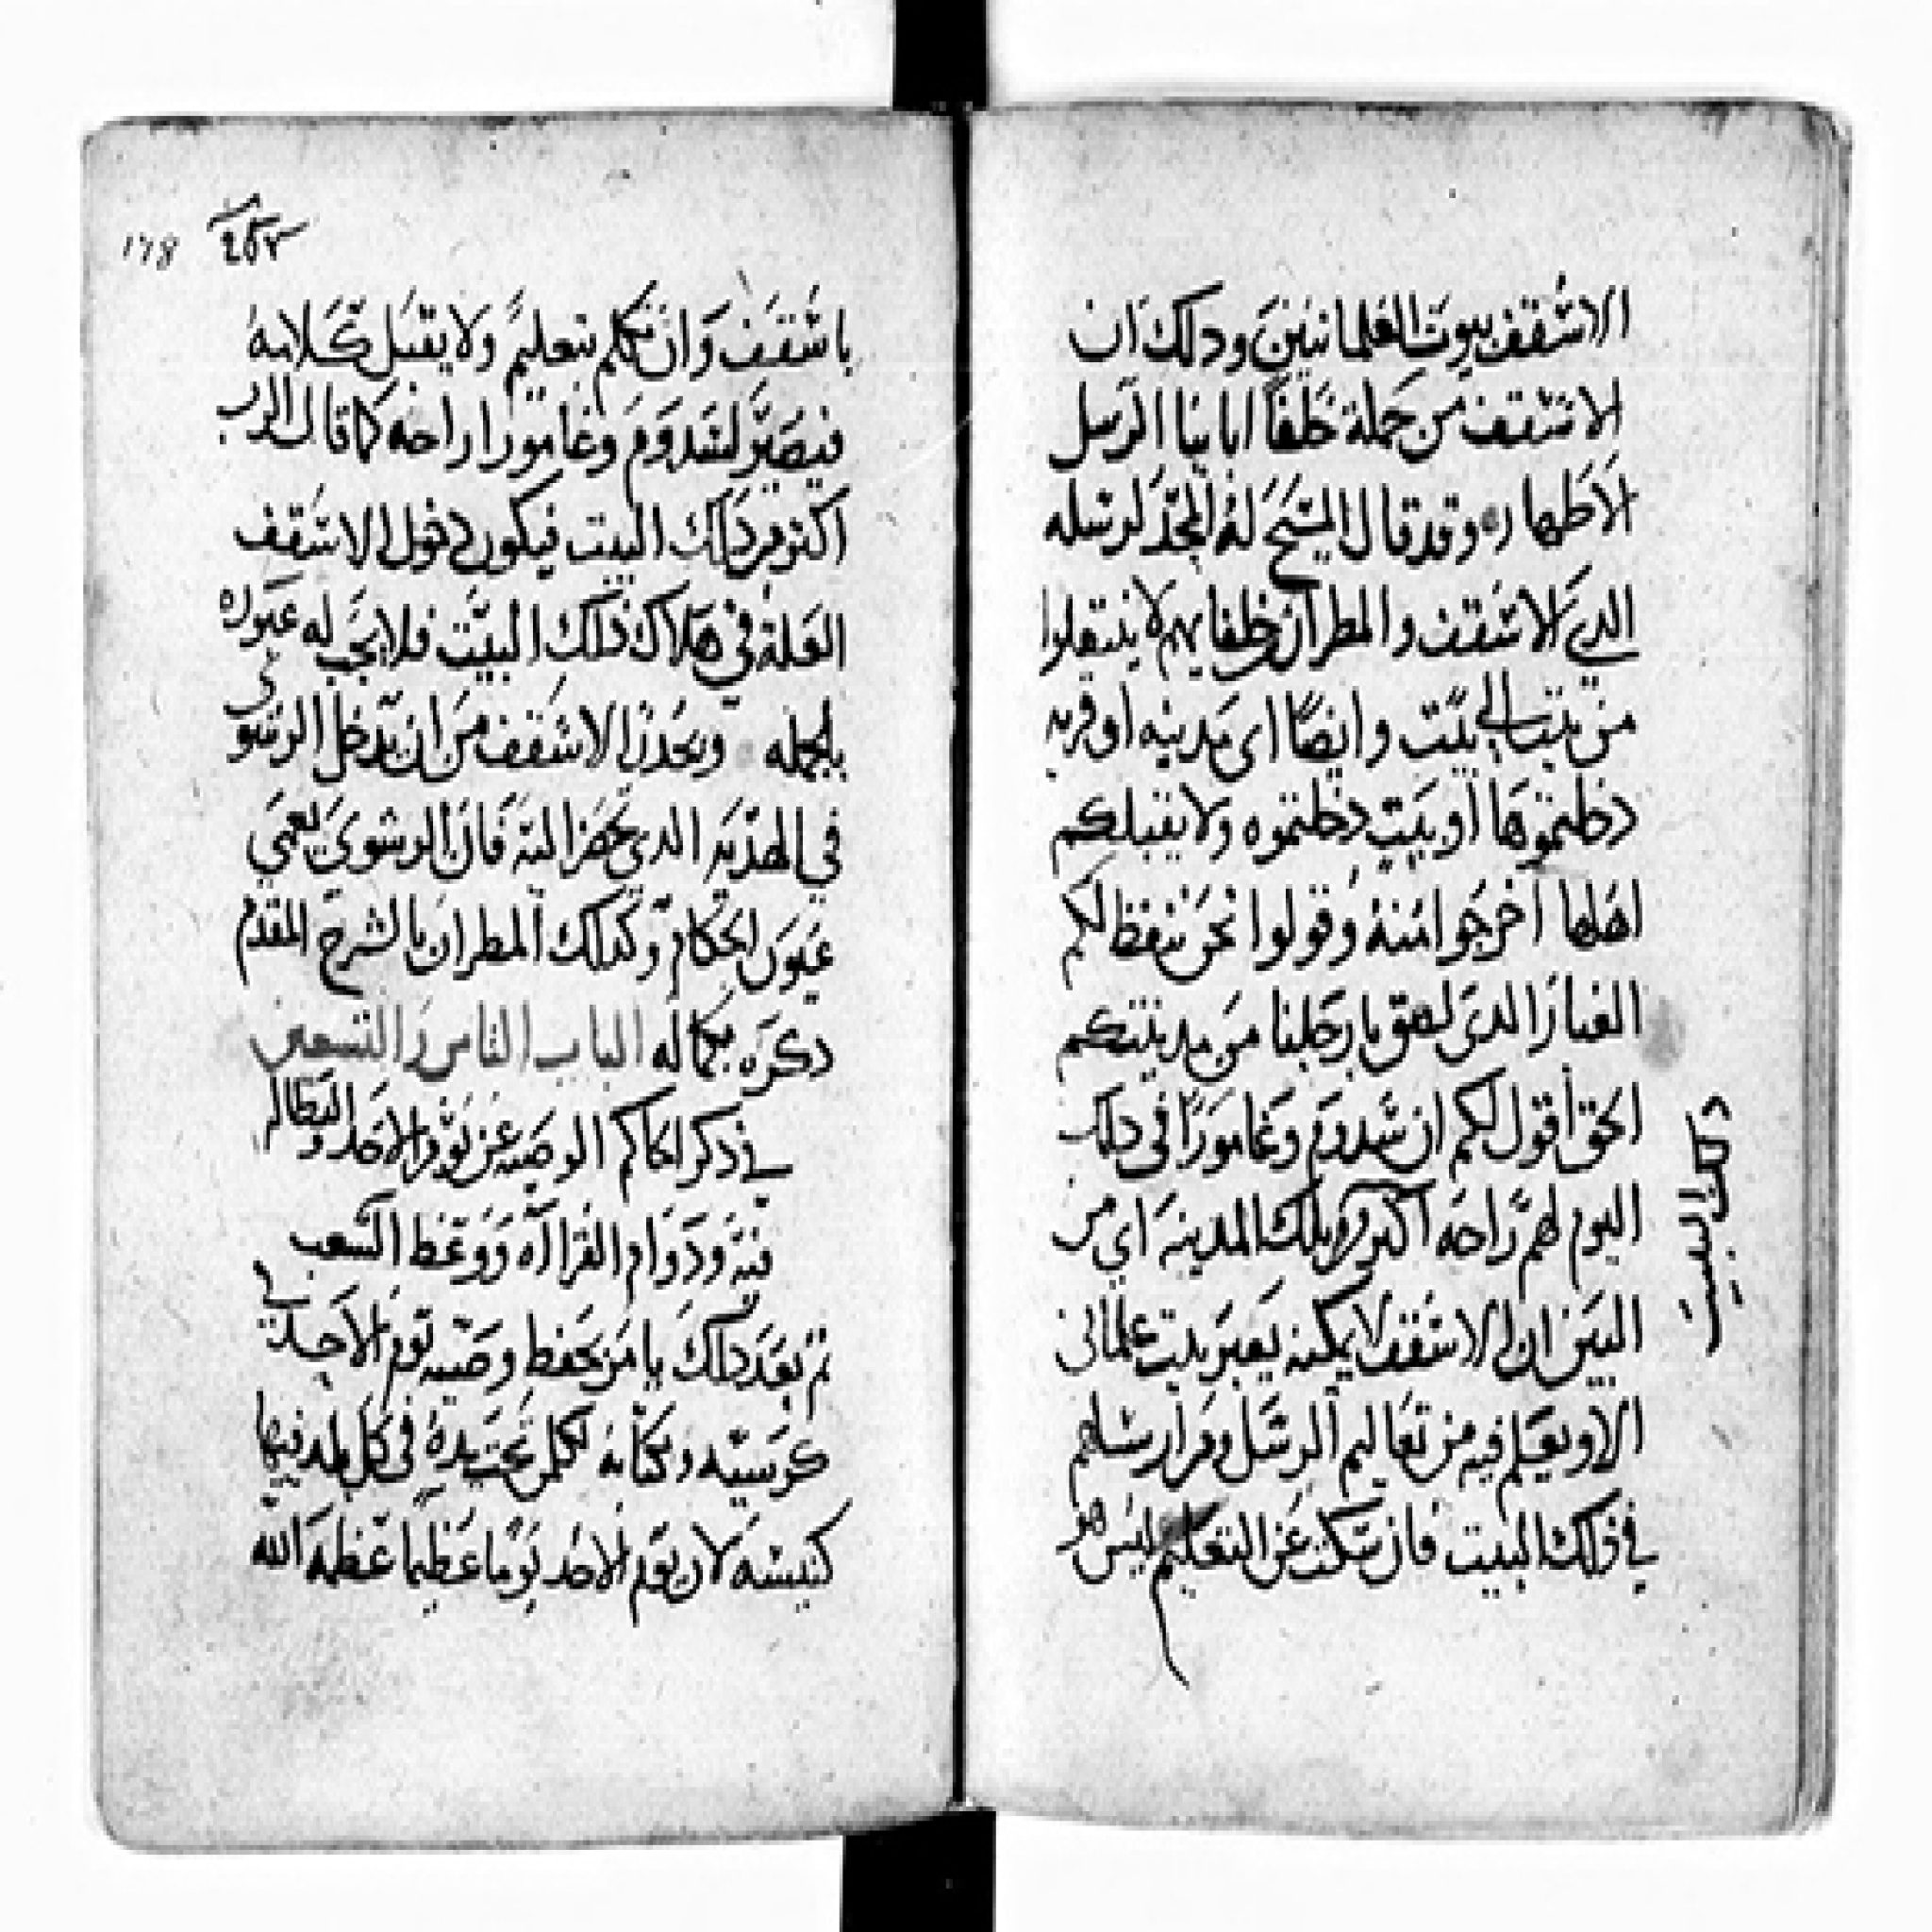 الاسقف بيوت العلمانيين ودلك ان
الاسقف من جملة خلفا ابابنا الرسل
الاطهار وقد قال المسيح له المجد لرسله
الدي الاسقف والمطران خلفايهم لا ينتقلوا
من بيت الي بيت وايضا اي مدينه او قريه
دخلتموها او بيت دخلتموه ولا يقبلكم
اهلها اخرجوا منه وقولوا نحن ننفظ لكم
الغبار الدي لصق بارجلنا من مدينتكم
الحق اقول لكم ان سدوم وغامورا في دلك
اليوم لهم راحه اكتر من تلك المدينه اي من
دلك البيت
البين ان الاسقف لا يمكنه يعبر بيت علماني
الا ويعلم فيه من تعاليم الرسل ومن ارسلهم
في ذلك البيت فان سكت عن التعليم ليس هو
٤٥٣
178
باسقف وان تكلم بتعليم ولا يقبل كلامه
فيصير لسدوم وغامورا راحه كما قال الرب
اكتر من دلك البيت فيكون دخول الاسقف
العلة في هلاك ذلك البيت فلا يجب له عبوره
بالجمله ويحدر الاسقف من ان يدخل الرشوي
في الهديه الدي تحضر اليه فان الرشوي يعمي
عيون الحكام وكدلك المطران بالشرح المقدم
دكره بكماله الباب التامن والتسعين
في ذكر احكام الوصيه عن يوم الاحد والبطاله
فيه ودوام القراآه ووعظ الشعب
تم بعد دلك يا من يحفظ وصيه يوم الاحد في
كرسيه وبكتابه لكل من تحت يده في كل بلد فيها
كنيسه لان يوم الاحد يوما عظيما عظمه الله